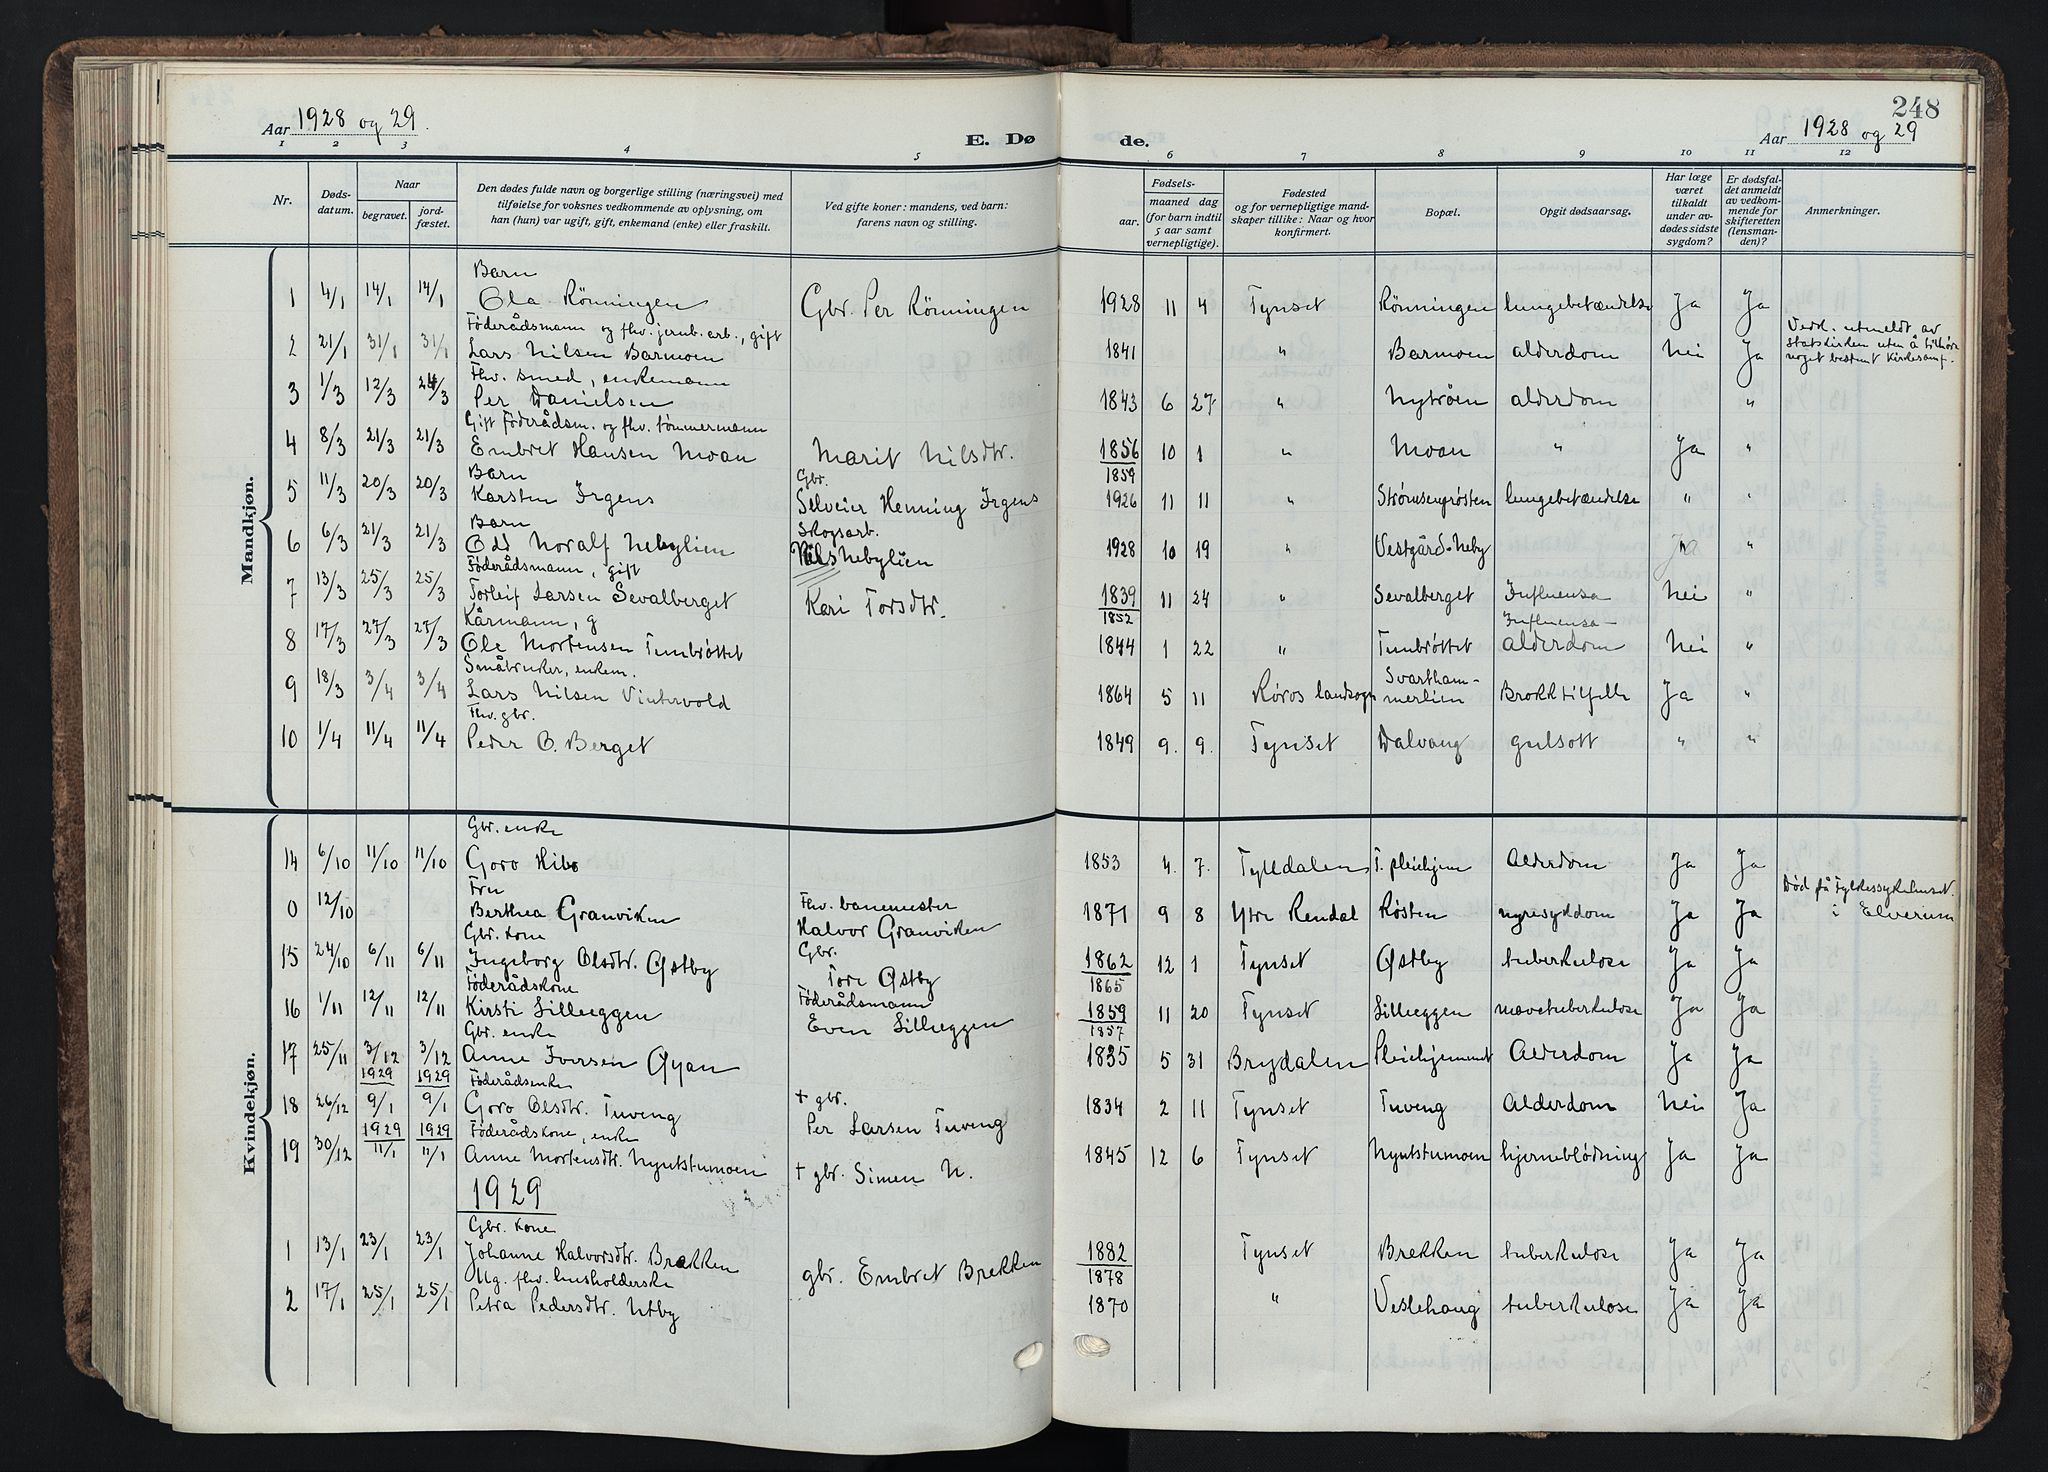 248
Aar 1928 og 29.
E. Dø de.
Aar 1928 og 29
1 2 3 4 5 6 7 8 9 10 11 12
Nr.
Døds-
datum.
Naar
begravet.
jord-
fæstet.
Den dødes fulde navn og borgerlige stilling (næringsvei) med
tilføielse for voksnes vedkommende av oplysning, om
han (hun) var ugift, gift, enkemand (enke) eller fraskilt.
Ved gifte koner: mandens, ved barn:
farens navn og stilling.
Fødsels-
aar. maaned dag
(for barn indtil
5 aar samt
vernepligtige).
Fødested
og for vernepligtige mand-
skaper tillike: Naar og hvor
konfirmert.
Bopæl.
Opgit dødsaarsag.
Har læge
været
tilkaldt
under av-
dødes sidste
sygdom?
Er dødsfal-
det anmeldt
av vedkom-
mende for
skifteretten
(lensman-
den)?
Anmerkninger.
Mandkjøn.
Barn
1 4/1 14/1 14/1 Ola Rönningen Gbr. Per Rönningen 1928 11 4 Tynset Rønningen lungebetændelse Ja Ja
Föderådsmann og fhv. jernb. arb., gift
2 21/1 31/1 31/1 Lars Nilsen Barmoen 1841 " Barmoen alderdom Nei Ja
utmeldt av
statskirken uten å tilhøre
noget bestemt kirkesamf.
Fhv. smed, enkemann
3 1/3 12/3 24/3 Per Danielsen 1843 6 27 " Nytrøen alderdom "
Gift föderådsm. og fhv. tømmermann
4 8/3 21/3 21/3 Embret Hansen Moan Marit Nilsdtr. 1856 10 1 " Moan " Ja "
1859
Barn Gbr.
5 11/3 20/3 20/3 Karsten Irgens Selveier Henning Irgens 1926 11 11 " lungebetændelse " "
Barn Skogsarb.
6 6/3 21/3 21/3 Odd Noralf Nebylien Nils Nebylien 1928 10 19 " Vestgård-Neby Ja "
Föderådsmann, gift
7 13/3 25/3 25/3 Torleif Larsen Sevalberget Kari Torsdtr. 1839 11 24 " Sevalberget Influensa Nei "
1852
Kårmann, g Influensa-
8 17/3 27/3 27/3 Ole Mortensen Tunbrøttet 1844 1 22 " Tunbrøttet alderdom Nei "
Småbruker, enkem. Svartham-
9 18/3 3/4 3/4 Lars Nilsen Vintervold 1864 5 11 Røros landsogn merlien Brokktilfelle Ja "
Fhv. gbr.
10 1/4 11/4 11/4 Peder O. Berget 1849 9. 9. Tynset Dalvang gulsott " "
Kvindekjøn.
Gbr. enke
14 6/10 11/10 11/10 Goro Hibo 1853 4. 7. Tylldalen T. pleiehjem Alderdom Ja Ja
Fru Fhv. banemester Død på Fylkessykehuset
0 12/10 Berthea Granviken Halvor Granviken 1871 9 8 Ytre Rendal Røsten nyresykdom Ja Ja i Elverum
Gbr. kone Gbr.
15 24/10 6/11 6/11 Ingeborg Olsdtr. Østby Tore Østby 1862 12 1 Tynset Østby tuberkulose Ja Ja
1865
Föderådskone Föderådsmann
16 1/11 12/11 12/11 Kirsti Lilleeggen Even Lilleeggen 1859 11 20 Tynset Lilleeggen Ja Ja
1857
Gbr. enke
17 25/11 3/12 3/12 Anne Iversen Øyan 1835 5 31 Brydalen Pleiehjemmet Alderdom Ja Ja
1929 1929 Föderådsenke
18 26/12 9/1 9/1 Goro Olsdtr. Tuveng + gbr. Per Larsen Tuveng 1834 2 11 Tynset Tuveng Alderdom Nei Ja
1929 1929 Föderådskone, enke
19 30/12 11/1 11/1 Anne Mortensdtr. Nyutstumoen + gbr. Simen N. 1845 12 6 Tynset Nyutstumoen hjerneblødning Ja Ja
1929
Gbr. kone
1 13/1 23/1 23/1 Johanne Halvorsdtr. Brekken gbr. Embret Brekken 1882 Tynset Brekken tuberkulose Ja Ja
1878
Ug. fhv. husholderske
2 17/1 25/1 25/1 Petra Pedersdtr. Utby 1870 " Veslehaug tuberkulose Ja Ja